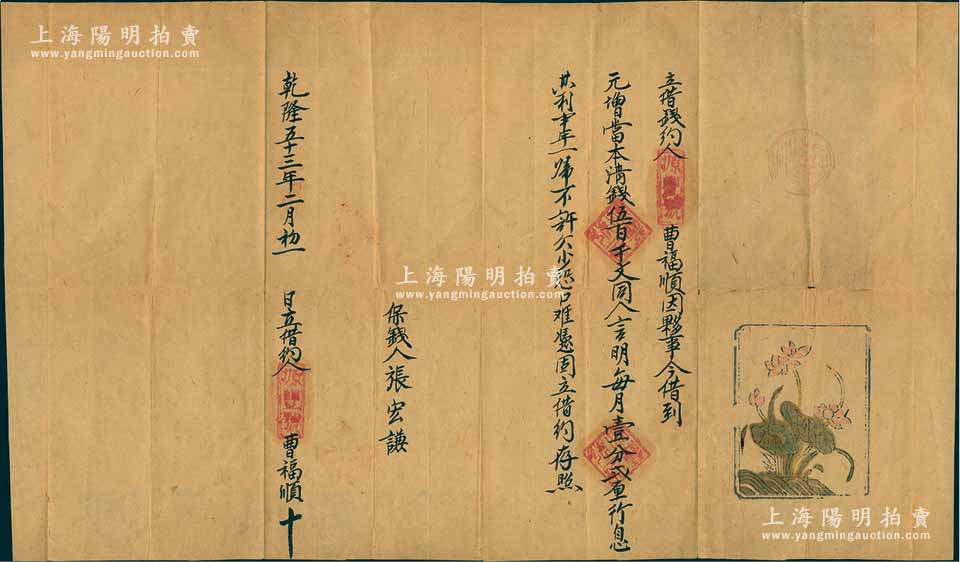 立借錢约人 曹福順因夥事今借到
元增當本清錢伍百千文同人言明每月壹分弍厘行息
其利半年一歸不許欠少恐口难憑固立借约存照
保錢人張宏謙
乾隆五十三年二月初一 日立借约人 曹福順 十
上海陽明拍賣
www.yangmingauction.com
上海陽明拍賣
www.yangmingauction.com
上海陽明拍賣
www.yangmingauction.com